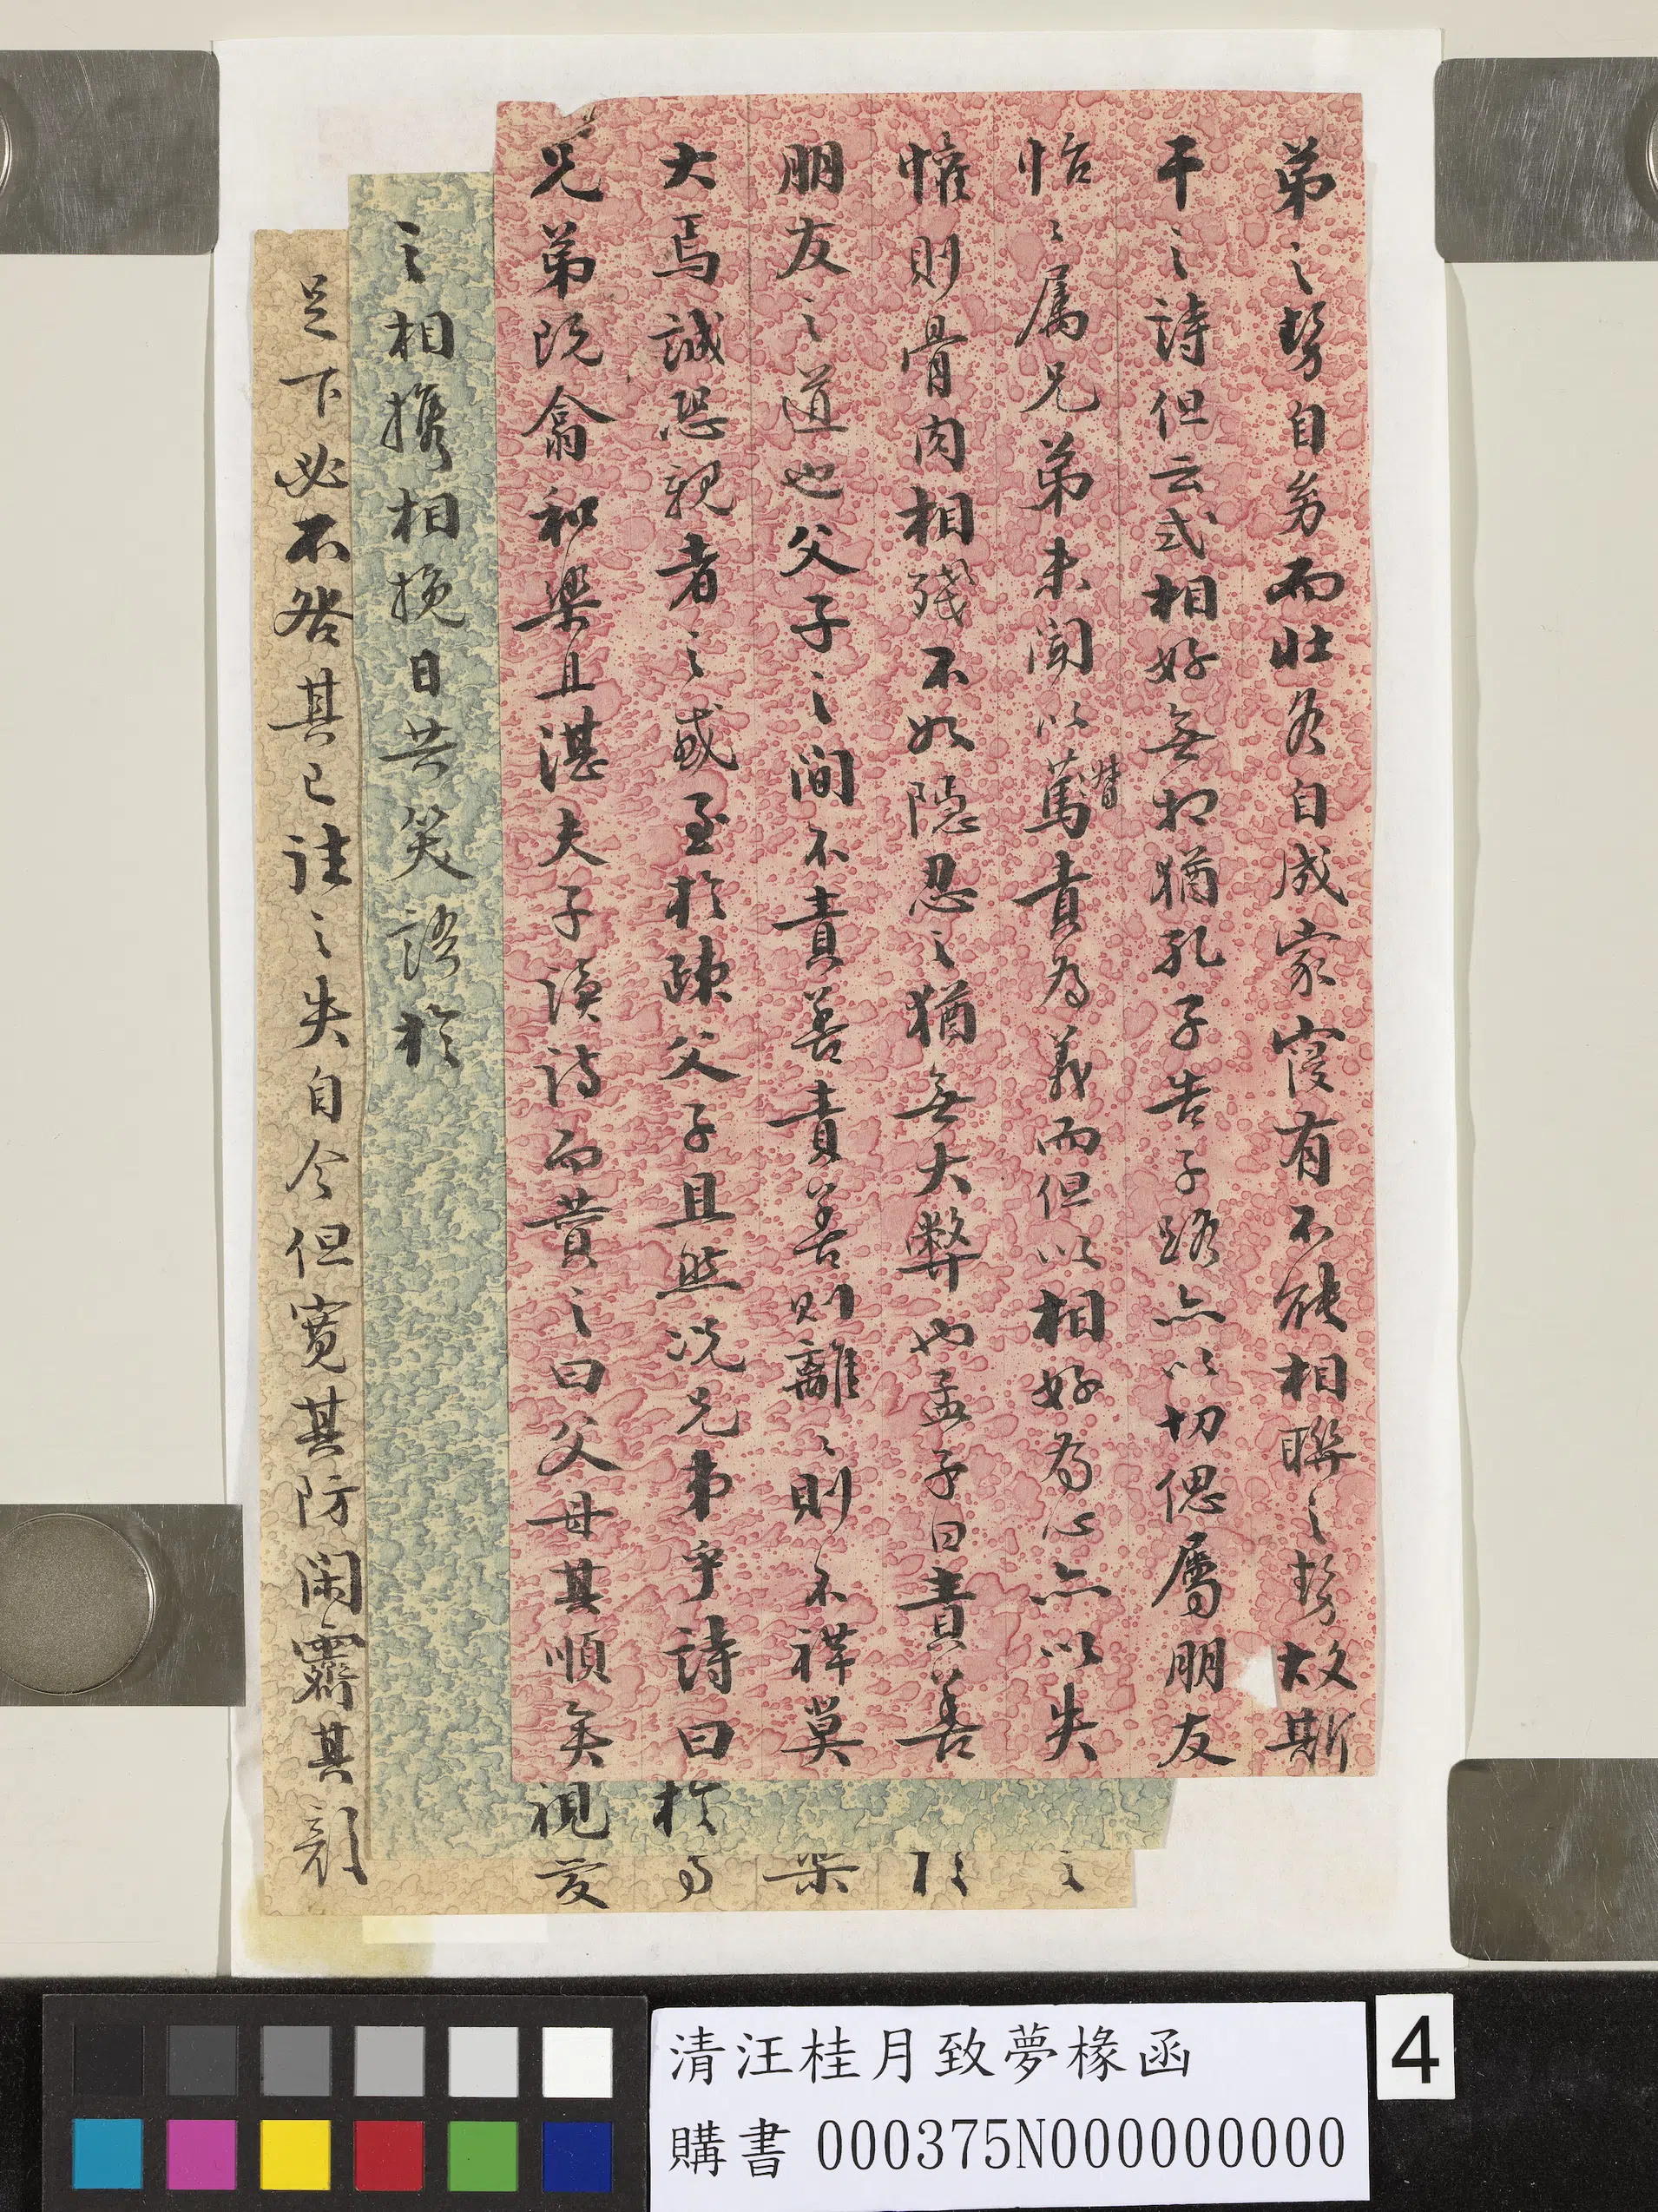 弟之勢自身而壯各自成家寖有不能相聯之勢故斯
干之詩但云式相好無相猶孔子告子路亦以切偲屬朋友
怡々屬兄弟未聞以督責為義而但以相好為心亦以失
懽則骨肉相殘不如隱忍之猶無大弊也孟子曰責善
朋友之道也父子之間不責善責善則離々則不祥莫
大焉誠恐親者之或至於疎父子且然況兄弟乎詩曰
兄弟既翕和樂且湛夫子讀詩而贊之曰父母其順矣
視
於
之相攜相挽日共笑語於
足下必不咎其已往之失自今但寬其防閑霽其顏
之
樂
爰
清汪桂月致夢椽函
購書 000375N000000000
4